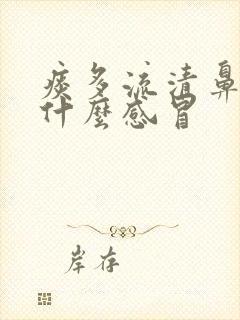 痰多流清鼻
什麼感冒
岸存